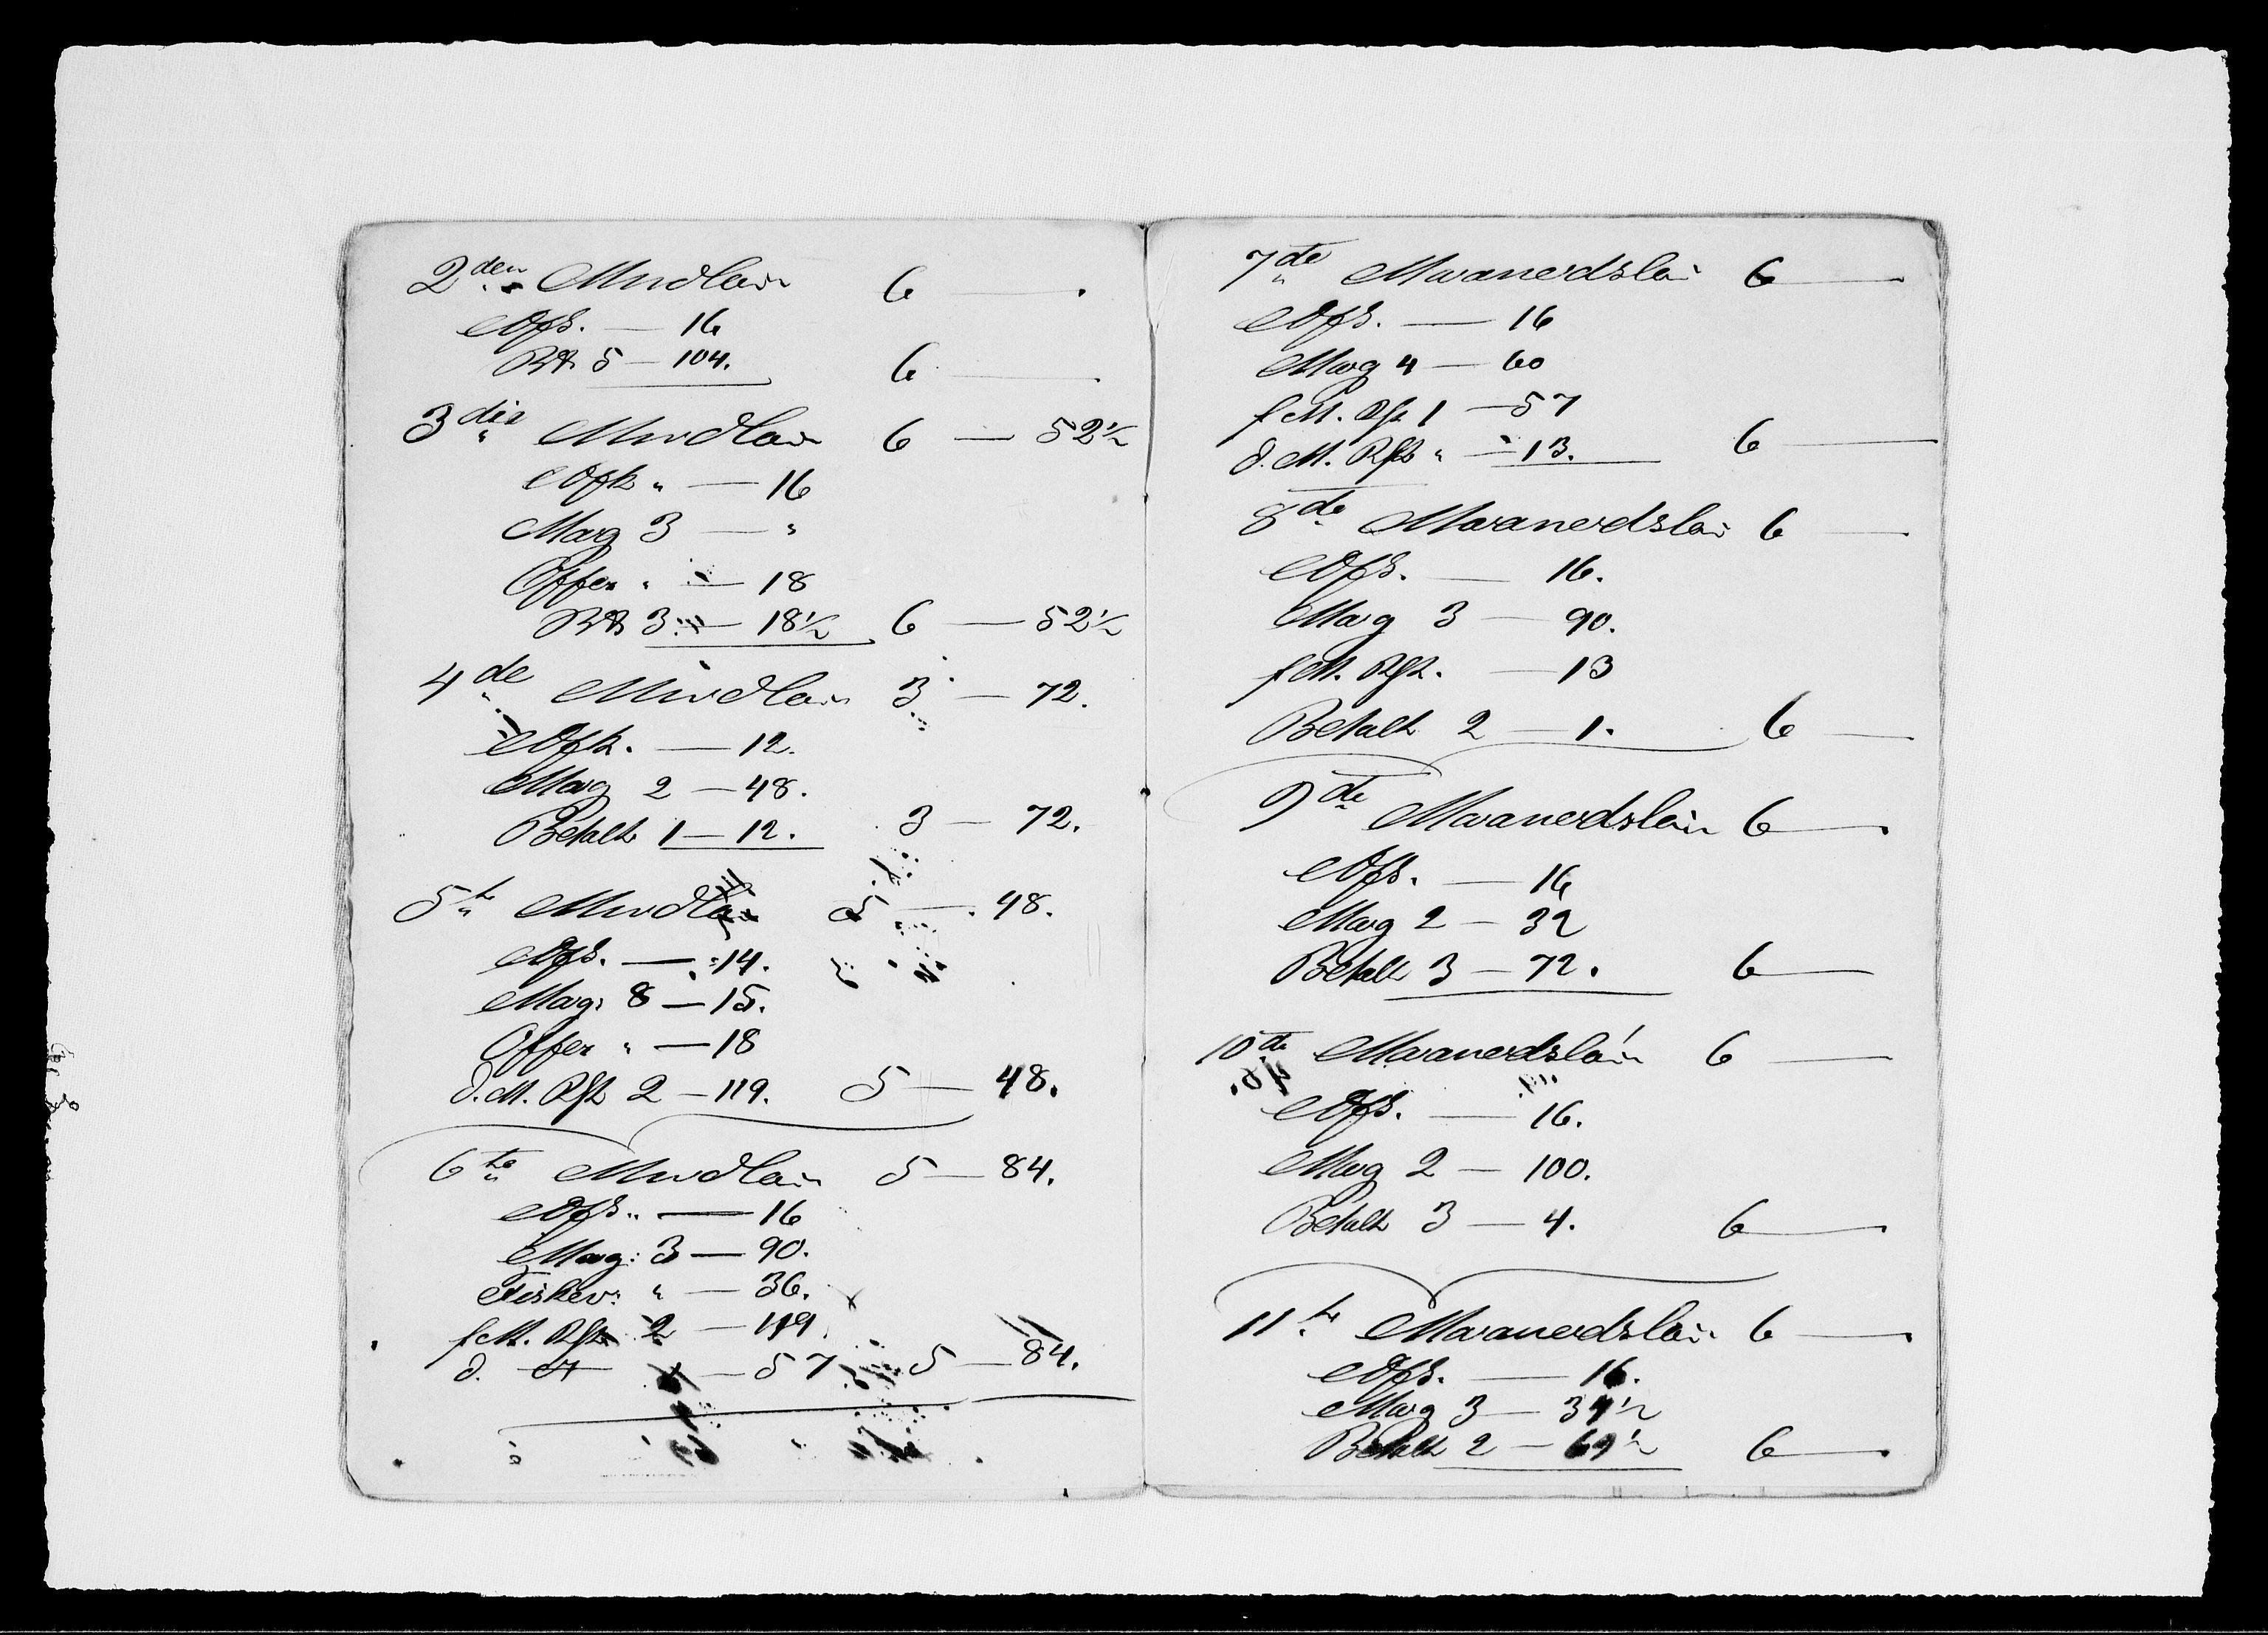 2den Mndlön 6 —
Ofs. — 16
Bt 5 — 104. 6 —
3die Mndlön 6 — 52½
Ofs " — 16
Mag 3 — "
Offer " — 18
Bt 3 — 18½ 6 — 52½
4de Mndlön 3 — 72.
Ofs. — 12.
Mag 2 — 48.
Betalt 1 — 12. 3 — 72.
5te Mndlön 5 — 48.
Ofs. — 14.
Mag: 8 — 15.
Offer " — 18
d. M. Rst 2 — 119. 5 — 48.
6te Mndlön 5 — 84.
Ofs " — 16
Mag: 3 — 90.
Fiskev: " — 36.
f M. Rst 2 — 119.
d. — 57 5 — 84.
7de Maanedslön 6 —
Ofs. — 16
Mag 4 — 60
f M. Rst 1 — 57
d. M. Rst " — 13. 6 —
8de Maanedslön 6 —
Ofs. — 16.
Mag 3 — 90.
f M. Rst. — 13
Betalt 2 — 1. 6 —
9de Maanedslön 6 —
Ofs. — 16
Mag 2 — 32
Betalt 3 — 72. 6 —
10de Maanedslön 6 —
Ofs. — 16.
Mag 2 — 100.
Betalt 3 — 4. 6 —
11te Maanedslön 6 —
Ofs. — 16.
Mag 3 — 34½
Betalt 2 — 69½ 6 —